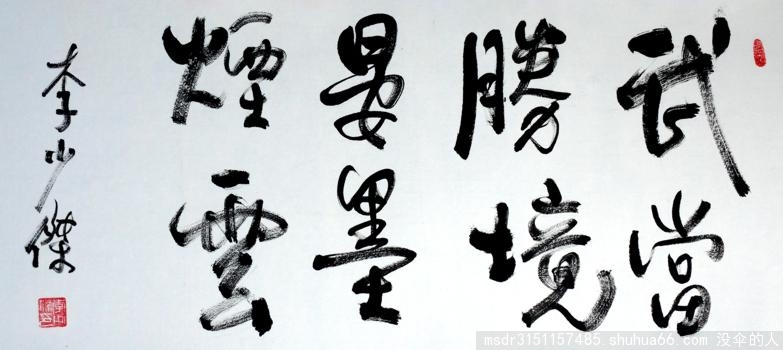 武當
勝境
晏墨
煙雲
李少傑
msdr3151157485.shuhua66.com 没伞的人